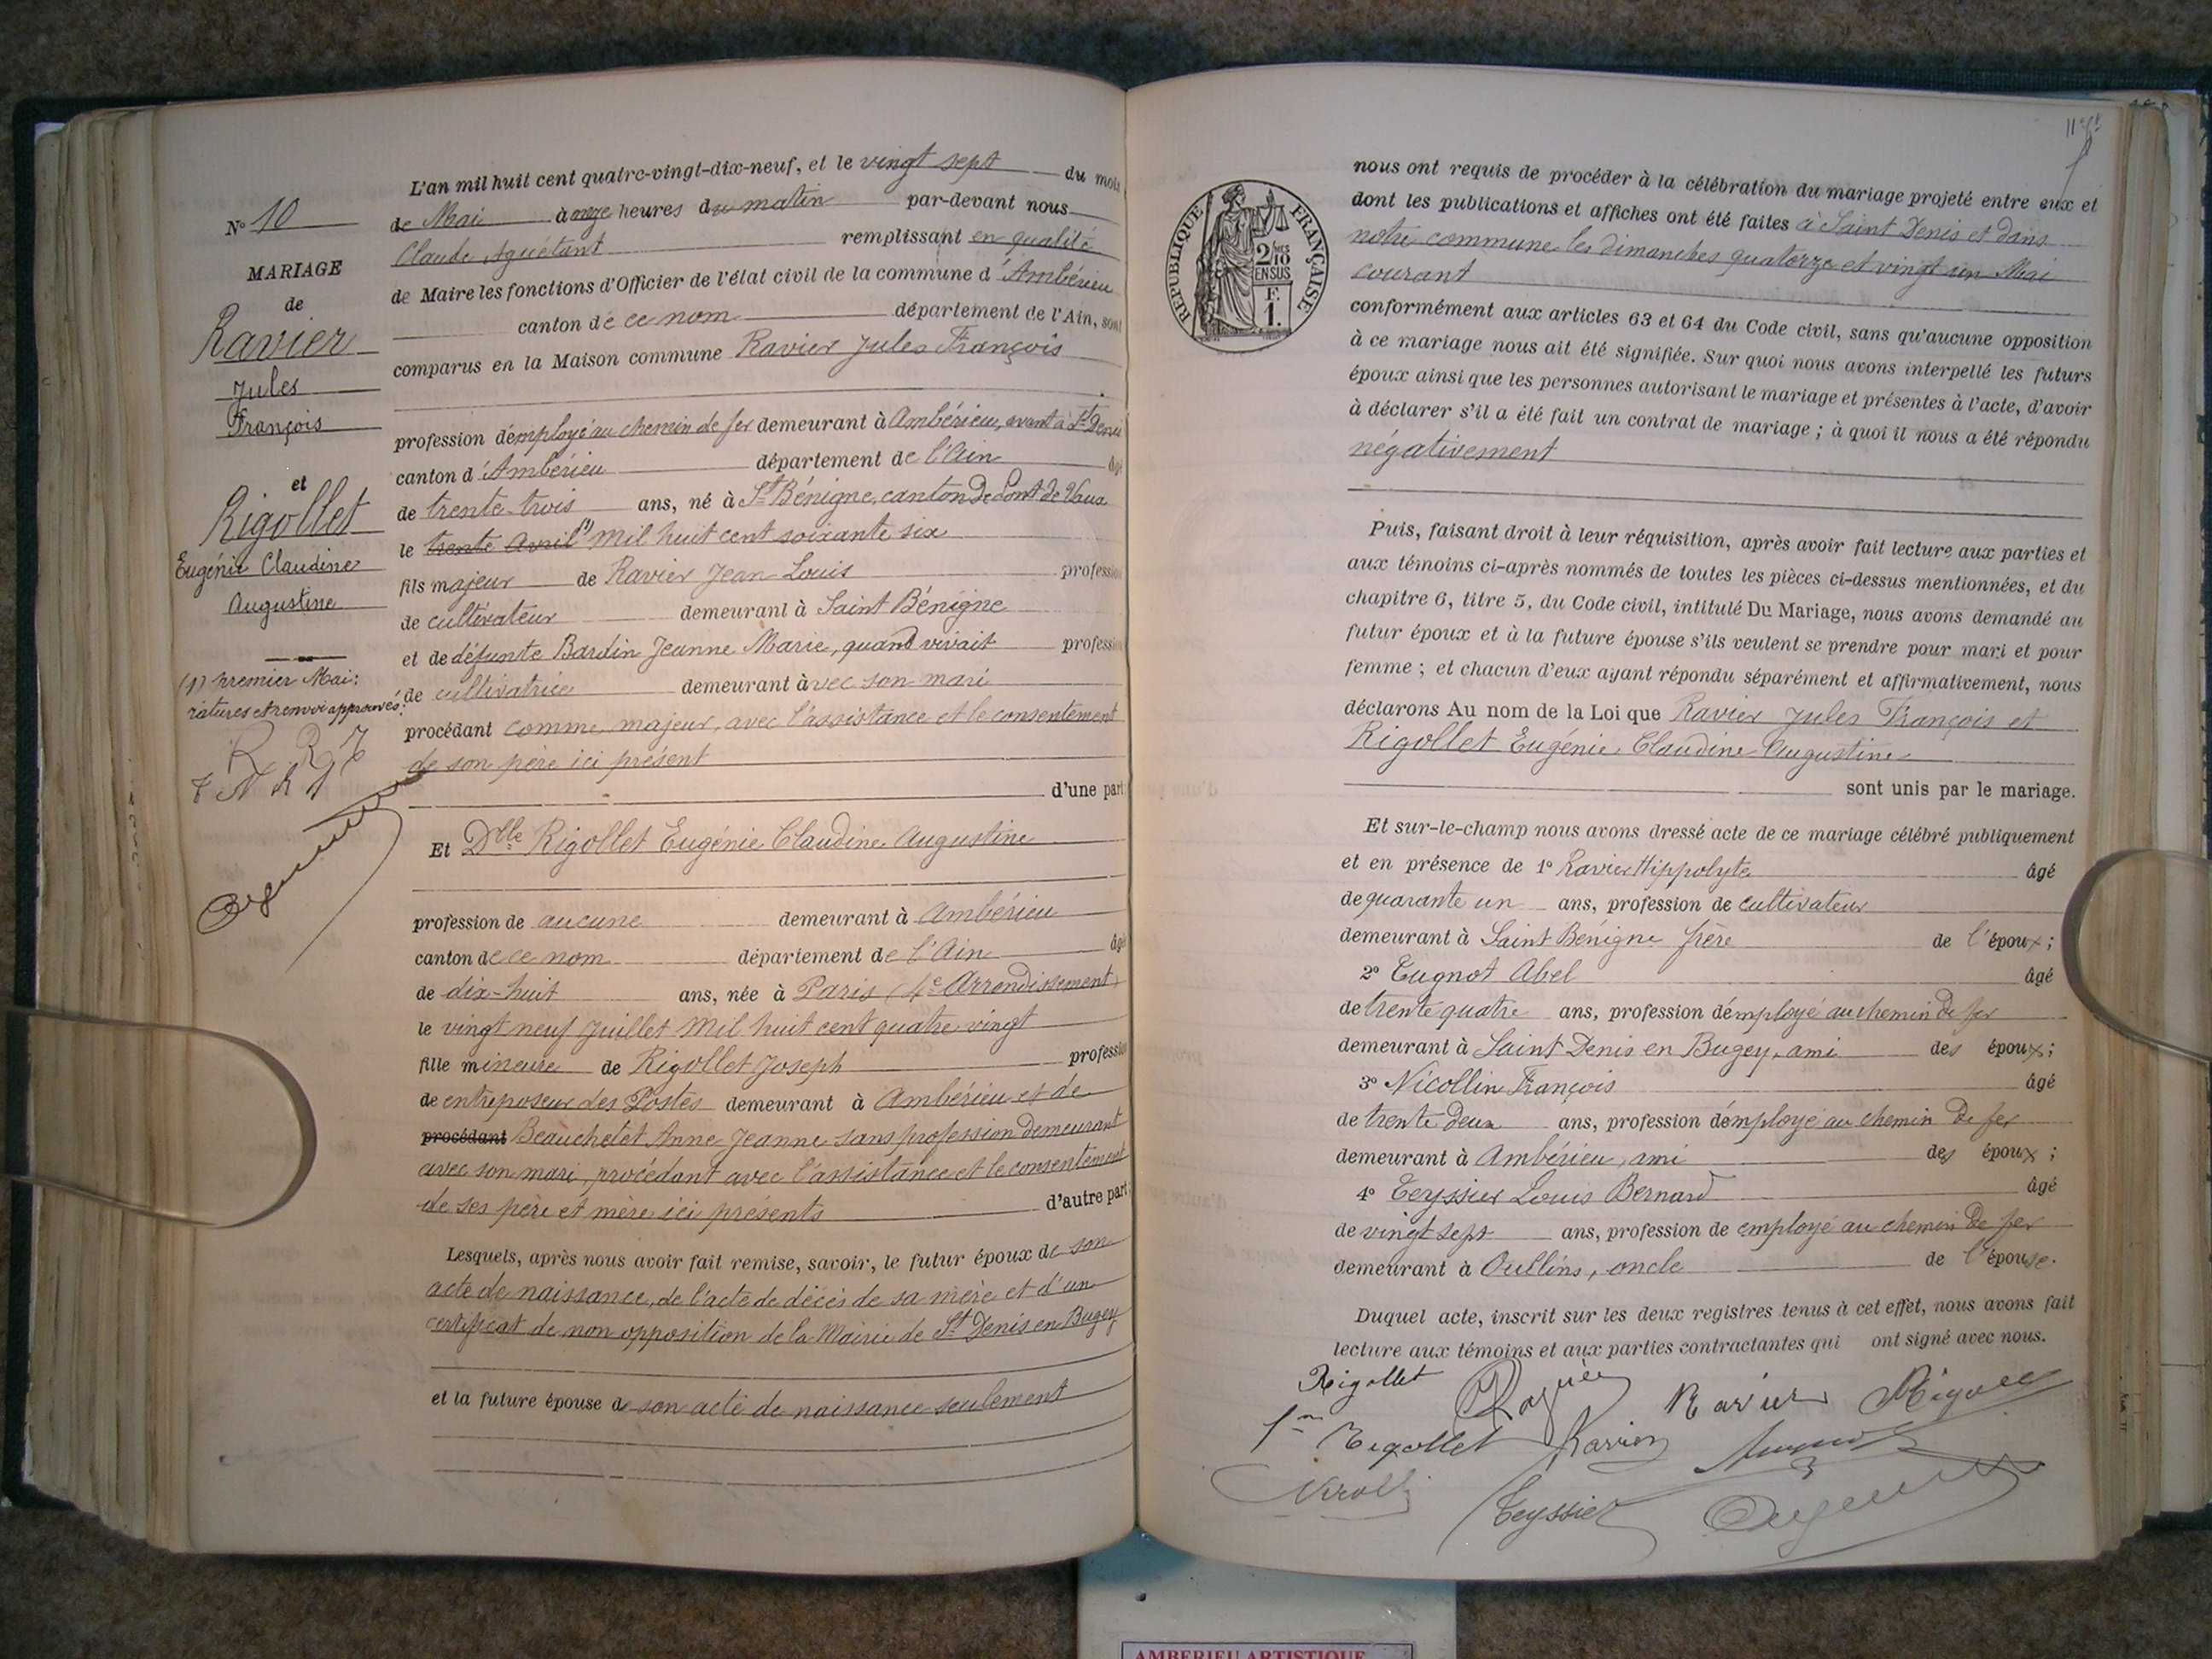 L'an mil huit cent quatre-vingt-dix-neuf, et le vingt sept du mois
de Mai à onze heures du matin par-devant nous
Claude Aguétant remplissant en qualité
de Maire les fonctions d'Officier de l'état civil de la commune d'Ambérieu
canton de ce nom département de l'Ain, sont
comparus en la Maison commune Ravier Jules François
profession d'employé au chemin de fer demeurant à Ambérieu, avant à St Denis
canton d'Ambérieu département de l'Ain âgé
de trente-trois ans, né à St Bénigne, canton de Pont de Vaux
le trente Avril (1) mil huit cent soixante six
fils majeur de Ravier Jean Louis profession
de cultivateur demeurant à Saint Bénigne
et de défunte Bardin Jeanne Marie, quand vivait profession
de cultivatrice demeurant avec son mari
procédant comme majeur, avec l'assistance et le consentement
de son père ici présent
d'une part
Et Dlle Rigollet Eugénie Claudine Augustine
profession de aucune demeurant à Ambérieu
canton de ce nom département de l'Ain âgé
de dix-huit ans, née à Paris (4e Arrondissement)
le vingt neuf Juillet mil huit cent quatre vingt
fille mineure de Rigollet Joseph profession
de entreposeur des Postes demeurant à Ambérieu et de
procédant Beauchetet Anne Jeanne sans profession demeurant
avec son mari, procédant avec l'assistance et le consentement
de ses père et mère ici présents d'autre part
Lesquels, après nous avoir fait remise, savoir, le futur époux de son
acte de naissance, de l'acte de décès de sa mère et d'un
certificat de non opposition de la Mairie de St Denis en Bugey
et la future épouse de son acte de naissance seulement
No 10
MARIAGE
de
Ravier
Jules
François
et
Rigollet
Eugénie Claudine
Augustine
(1) premier Mai:
ratures et renvoi approuvés.
nous ont requis de procéder à la célébration du mariage projeté entre eux et
dont les publications et affiches ont été faites à Saint Denis et dans
notre commune les dimanches quatorze et vingt un Mai
courant
conformément aux articles 63 et 64 du Code civil, sans qu'aucune opposition
à ce mariage nous ait été signifiée. Sur quoi nous avons interpellé les futurs
époux ainsi que les personnes autorisant le mariage et présentes à l'acte, d'avoir
à déclarer s'il a été fait un contrat de mariage ; à quoi il nous a été répondu
négativement
Puis, faisant droit à leur réquisition, après avoir fait lecture aux parties et
aux témoins ci-après nommés de toutes les pièces ci-dessus mentionnées, et du
chapitre 6, titre 5, du Code civil, intitulé Du Mariage, nous avons demandé au
futur époux et à la future épouse s'ils veulent se prendre pour mari et pour
femme ; et chacun d'eux ayant répondu séparément et affirmativement, nous
déclarons Au nom de la Loi que Ravier Jules François et
Rigollet Eugénie Claudine Augustine
sont unis par le mariage.
Et sur-le-champ nous avons dressé acte de ce mariage célébré publiquement
et en présence de 1o Ravier Hippolyte âgé
de quarante un ans, profession de cultivateur
demeurant à Saint Bénigne frère de l'époux ;
2o Tugnot Abel âgé
de trente quatre ans, profession d'employé au chemin de fer
demeurant à Saint Denis en Bugey, ami des époux ;
3o Nicollin François âgé
de trente deux ans, profession d'employé au chemin de fer
demeurant à Ambérieu, ami des époux ;
4o Teyssier Louis Bernard âgé
de vingt sept ans, profession de employé au chemin de fer
demeurant à Oullins, oncle de l'épouse.
Duquel acte, inscrit sur les deux registres tenus à cet effet, nous avons fait
lecture aux témoins et aux parties contractantes qui ont signé avec nous.
Rigollet Ravier
Rigollet Ravier
Teyssier
RÉPUBLIQUE FRANÇAISE
2/10
EN SUS
F.
1.
AMBERIEU ARTISTIQUE